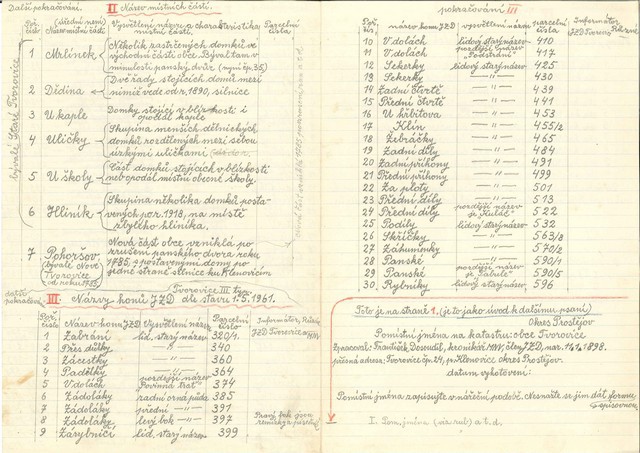 Další pokračování. II Název místních částí.
Poř. číslo (Úřední není) Název místní části Vysvětlení názvu a charakteristika místní části. Parcelní čísla
bývalé Staré Tvorovice
1 Mrlínek Několik zastrčených domků ve
východní části obce. Býval tam v
minulosti panský dvůr (nyní čp. 35.)
2 Dědina Dvě řady, stojících domů mezi
nimiž vede od r. 1890, silnice
3 U kaple Domky stojící v blízkosti i
opodál kaple
4 Uličky Skupina menších dělnických
domků rozdělených mezi sebou
úzkými uličkami
5 U školy Část domků stojících v blízkosti
neb opodál místní obecné školy
6 Hliník Skupina několika domků posta-
vených po r. 1918, na místě
zbylého hliníka.
7 Pohoršov Nová část obce vzniklá po
bývalé Nové Tvorovice od roku 1785. zrušení panského dvora roku
1785, a postavenými domy po
jedné straně silnice ku Klenovicím
další pokračování III. Tvorovice III. typ.
Názvy honů JZD dle stavu 1.5.1961.
Poř. čís. Název honu JZD Vysvětlení názvu Parcelní číslo Informátor,
1 Zabrání lid. starý název 320/1.
2 Přes dědky —"— 340
3 Zácestky —"— 360
4 Padělky —"— 364
5 Vdolách pozdější název "Povinná trať" 374
6 Zádoláky radní orná půda 385
7 Zádoláky přední —"— 391
8 Zádoláky levý bok —"— 397
9 Zárybničí lid. starý název 399
pokračování III
Poř. čís. název honu JZD vysvětlení názvu parcelní číslo Informátor JZD Tvorov.
10 V dolách lidový starý název 410
11 V dolách pozdější název "Podsední" 417
12 Sekerky lidový starý název 425
13 Sekerky —"— 430
14 Zadní čtvrtě —"— 439
15 Přední čtvrtě —"— 441
16 U hřbitova —"— 453
17 Klín —"— 455/2
18 Žebráčky —"— 465
19 Zadní díly —"— 484
20 Zadní příhony —"— 491
21 Přední příhony —"— 499
22 Za ploty —"— 501
23 Přední díly —"— 513
24 Přední díly pozdější název je 522
25 Podíly lidový starý název 532
26 Skříčky —"— 563/8
27 Záhumenky —"— 570/2
28 Panské —"— 590/1
29 Panské pozdější název je 590/5
30 Rybníky lidový starý název 596
Toto je na straně 1. (je to jako úvod k dalšímu psaní)
Okres Prostějov
Pomístní jména na katastru: obce Tvorovice
Zpracoval: František Dosoudil, kronikář MNV, člen JZD, nar. 14.1.1898.
přesná adresa: Tvorovice čp. 24, p. Klenovice okres Prostějov.
datum vyhotovení:
Pomístní jména zapisujte v nářeční podobě. Nesnažte se jim dát formu
spisovnou.
V I. Pom. jména (viz rub) a t. d.